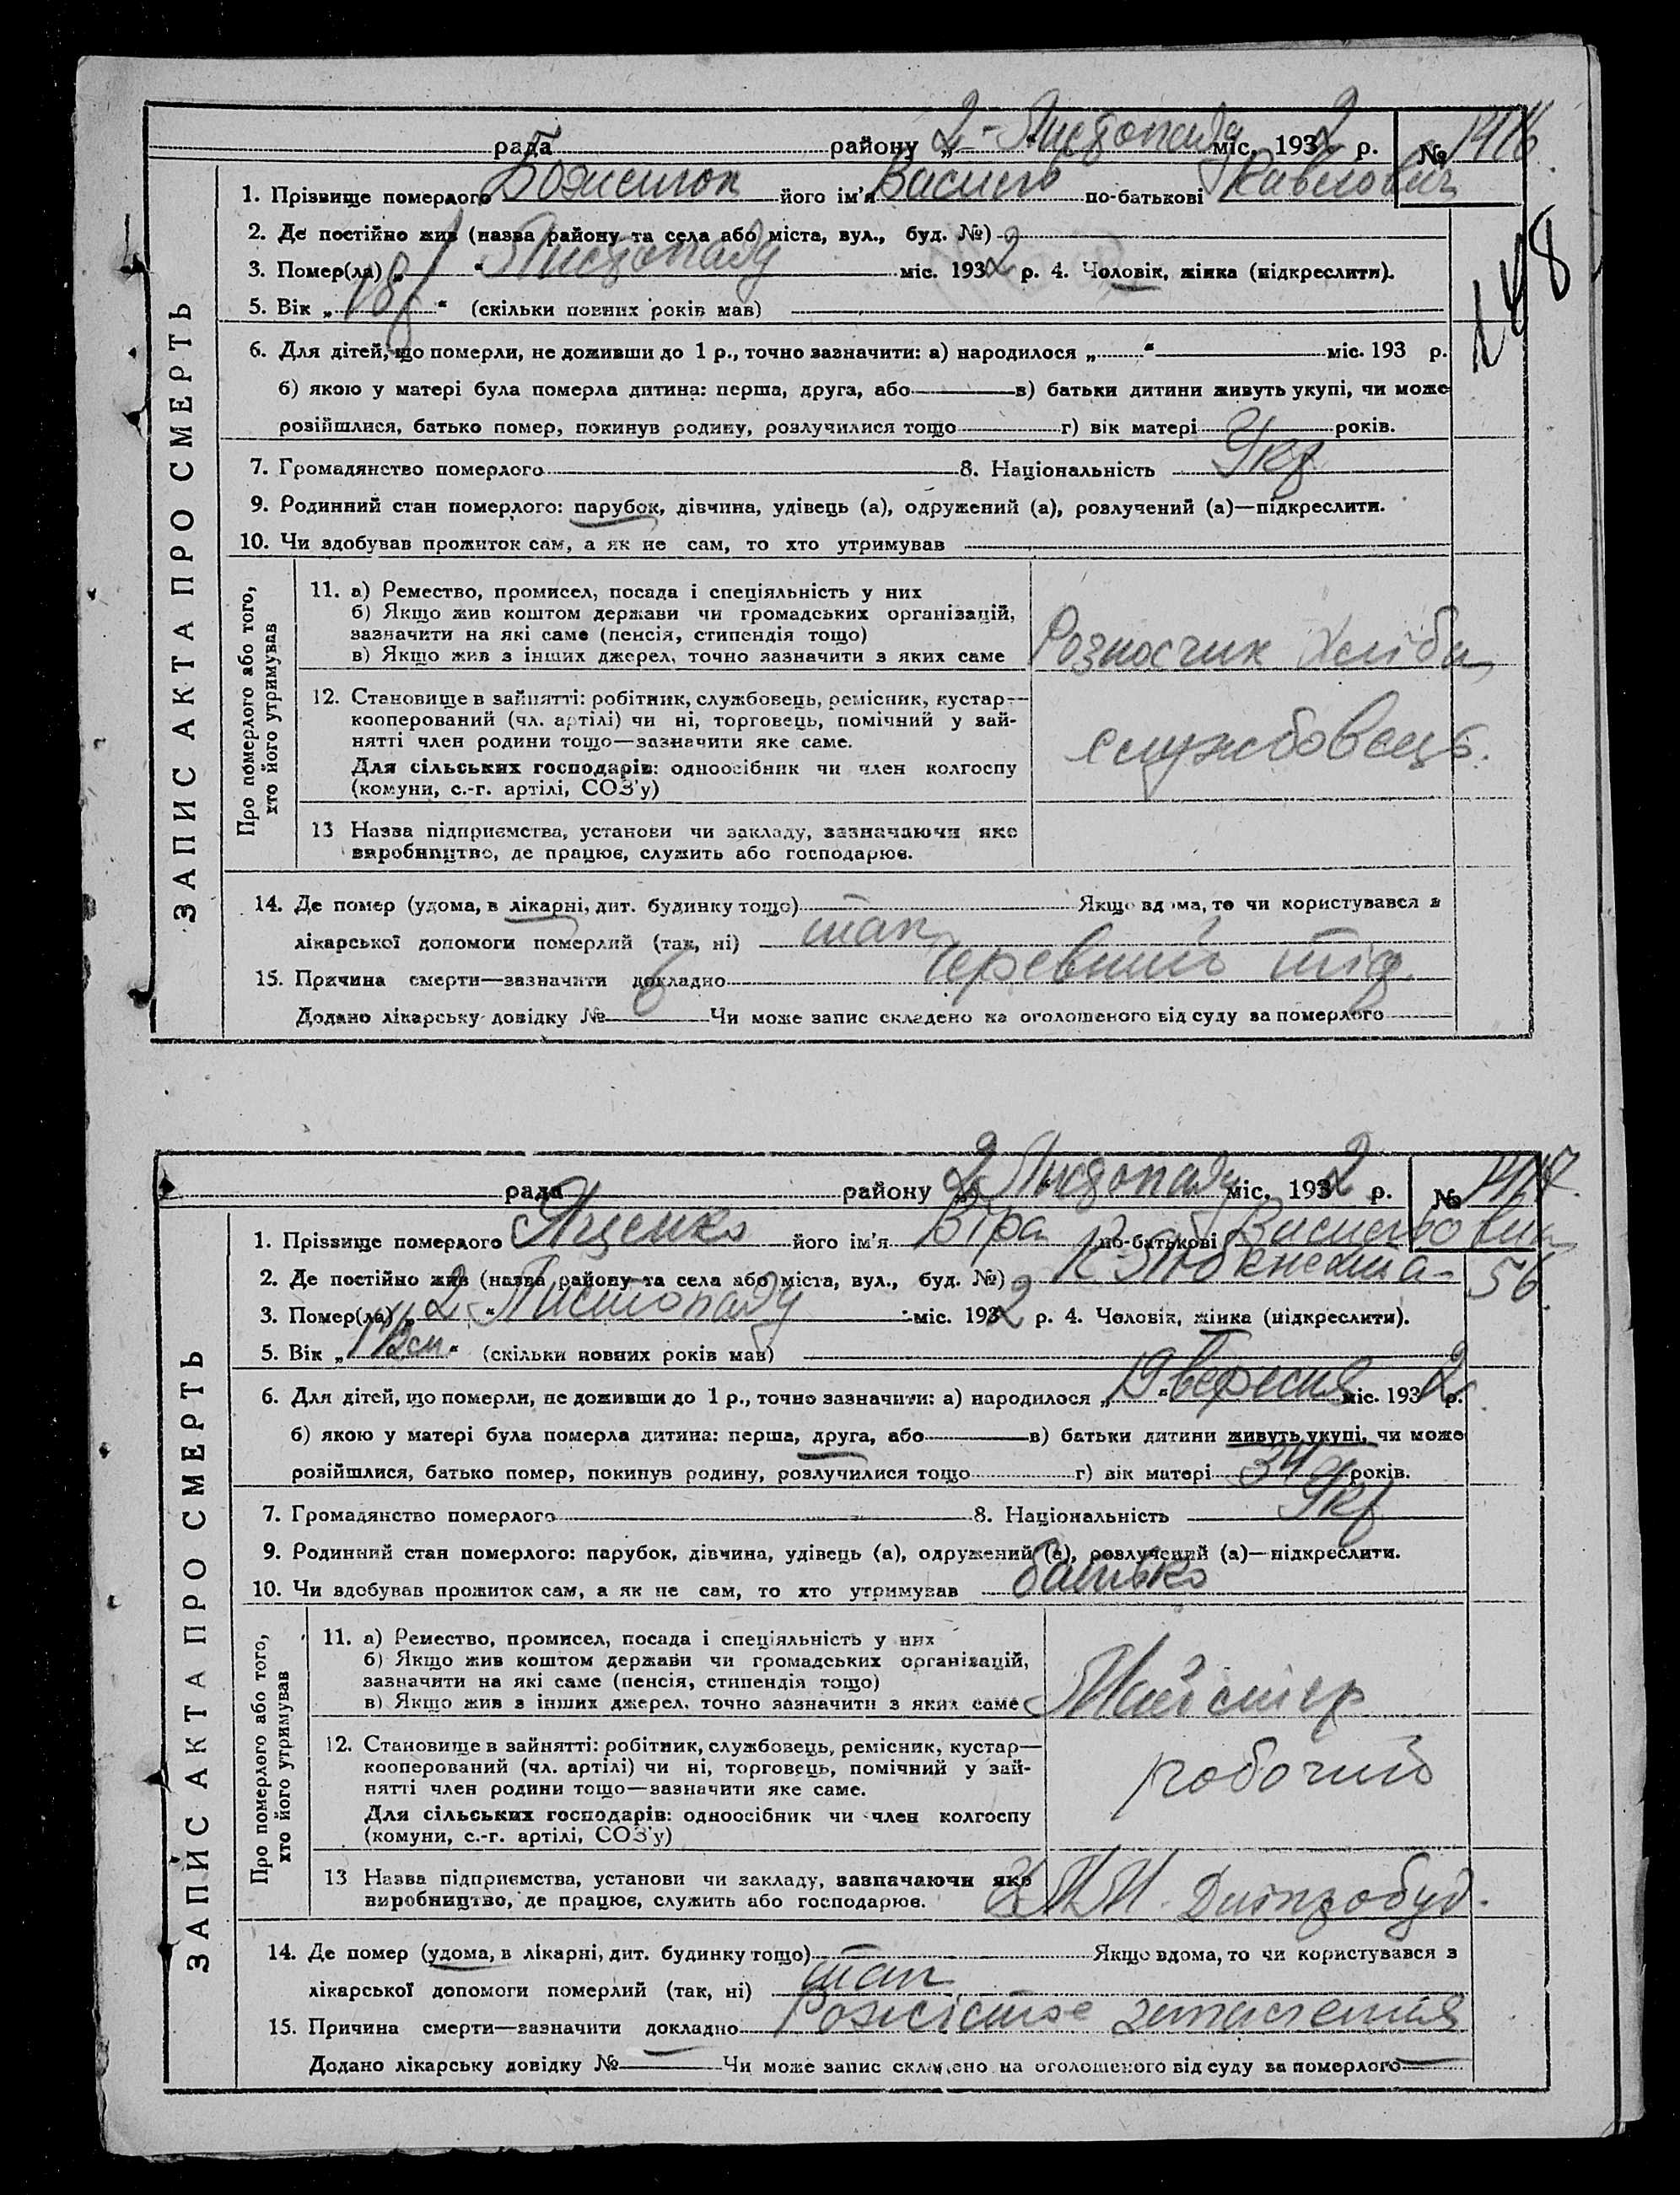 рада району „2-" Листопада міс. 1932 р. № 1416
1. Прізвище померлого його ім'я Василь по-батькові Павлович
2. Де постійно жив (назва району та села або міста, вул., буд. №)
3. Помер(ла) „1" Листопаду міс. 1932 р. 4. Чоловік, жінка (підкреслити).
148
5. Вік „18р" (скільки повних років мав)
6. Для дітей, що померли, не доживши до 1 р., точно зазначити: а) народилося „ " міс. 193 р.
б) якою у матері була померла дитина: перша, друга, або в) батьки дитини живуть укупі, чи може
розійшлися, батько помер, покинув родину, розлучилися тощо г) вік матері років.
7. Громадянство померлого 8. Національність Укр
9. Родинний стан померлого: парубок, дівчина, удівець (а), одружений (а), розлучений (а)—підкреслити.
10. Чи здобував прожиток сам, а як не сам, то хто утримував
ЗАПИС АКТА ПРО СМЕРТЬ
Про померлого або того,
хто його утримував
11. а) Ремество, промисел, посада і спеціяльність у них
б) Якщо жив коштом держави чи громадських організацій,
зазначити на які саме (пенсія, стипендія тощо)
в) Якщо жив з інших джерел, точно зазначити з яких саме
Розносчик хліба
12. Становище в зайнятті: робітник, службовець, ремісник, кустар—
кооперований (чл. артілі) чи ні, торговець, помічний у зай-
нятті член родини тощо—зазначити яке саме.
Для сільських господарів: одноосібник чи член колгоспу
(комуни, с.-г. артілі, СОЗ'у)
службовець.
13 Назва підприємства, установи чи закладу, зазначаючи яке
виробництво, де працює, служить або господарює.
14. Де помер (удома, в лікарні, дит. будинку тощо) Якщо вдома, то чи користувався з
лікарської допомоги померлий (так, ні) так
15. Причина смерти—зазначити докладно Черевний тіф.
Додано лікарську довідку № 6 Чи може запис складено на оголошеного від суду за померлого
рада району „2" Листопаду міс. 1932 р. № 1417.
1. Прізвище померлого Яценко його ім'я Віра по-батькові
2. Де постійно жив (назва району та села або міста, вул., буд. №) 56.
3. Помер(ла) „2" Листопаду міс. 1932 р. 4. Чоловік, жінка (підкреслити).
5. Вік „1 1/2 м" (скільки повних років мав)
6. Для дітей, що померли, не доживши до 1 р., точно зазначити: а) народилося „19" вересня міс. 1932 р.
б) якою у матері була померла дитина: перша, друга, або в) батьки дитини живуть укупі, чи може
розійшлися, батько помер, покинув родину, розлучилися тощо г) вік матері 34 років.
7. Громадянство померлого 8. Національність Укр
9. Родинний стан померлого: парубок, дівчина, удівець (а), одружений (а), розлучений (а)—підкреслити.
10. Чи здобував прожиток сам, а як не сам, то хто утримував батько
ЗАПИС АКТА ПРО СМЕРТЬ
Про померлого або того,
хто його утримував
11. а) Ремество, промисел, посада і спеціяльність у них
б) Якщо жив коштом держави чи громадських організацій,
зазначити на які саме (пенсія, стипендія тощо)
в) Якщо жив з інших джерел, точно зазначити з яких саме
Майстер
12. Становище в зайнятті: робітник, службовець, ремісник, кустар—
кооперований (чл. артілі) чи ні, торговець, помічний у зай-
нятті член родини тощо—зазначити яке саме.
Для сільських господарів: одноосібник чи член колгоспу
(комуни, с.-г. артілі, СОЗ'у)
робочий
13 Назва підприємства, установи чи закладу, зазначаючи яке
виробництво, де працює, служить або господарює.
Дніпробуд.
14. Де помер (удома, в лікарні, дит. будинку тощо) Якщо вдома, то чи користувався з
лікарської допомоги померлий (так, ні) так
15. Причина смерти—зазначити докладно
Додано лікарську довідку № Чи може запис складено на оголошеного від суду за померлого